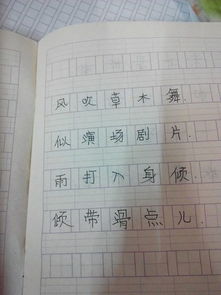 风吹草木舞.
似演场剧片.
雨打人身倾.
倾带滑点儿.